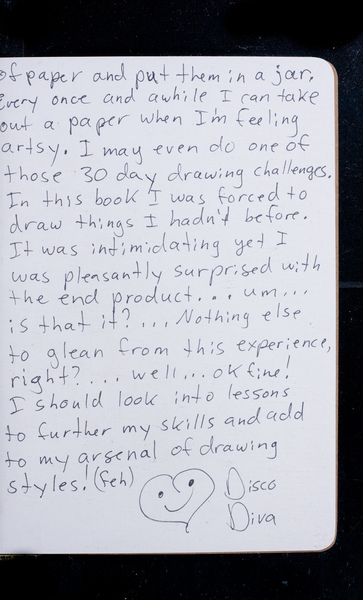 of paper and put them in a jar.
Every once and awhile I can take
out a paper when I'm feeling
artsy. I may even do one of
those 30 day drawing challenges.
In this book I was forced to
draw things I hadn't before.
It was intimidating yet I
was pleasantly surprised with
the end product... um...
is that it?... Nothing else
to glean from this experience,
right?... well... ok fine!
I should look into lessons
to further my skills and add
to my arsenal of drawing
styles! (feh)
Disco
Diva